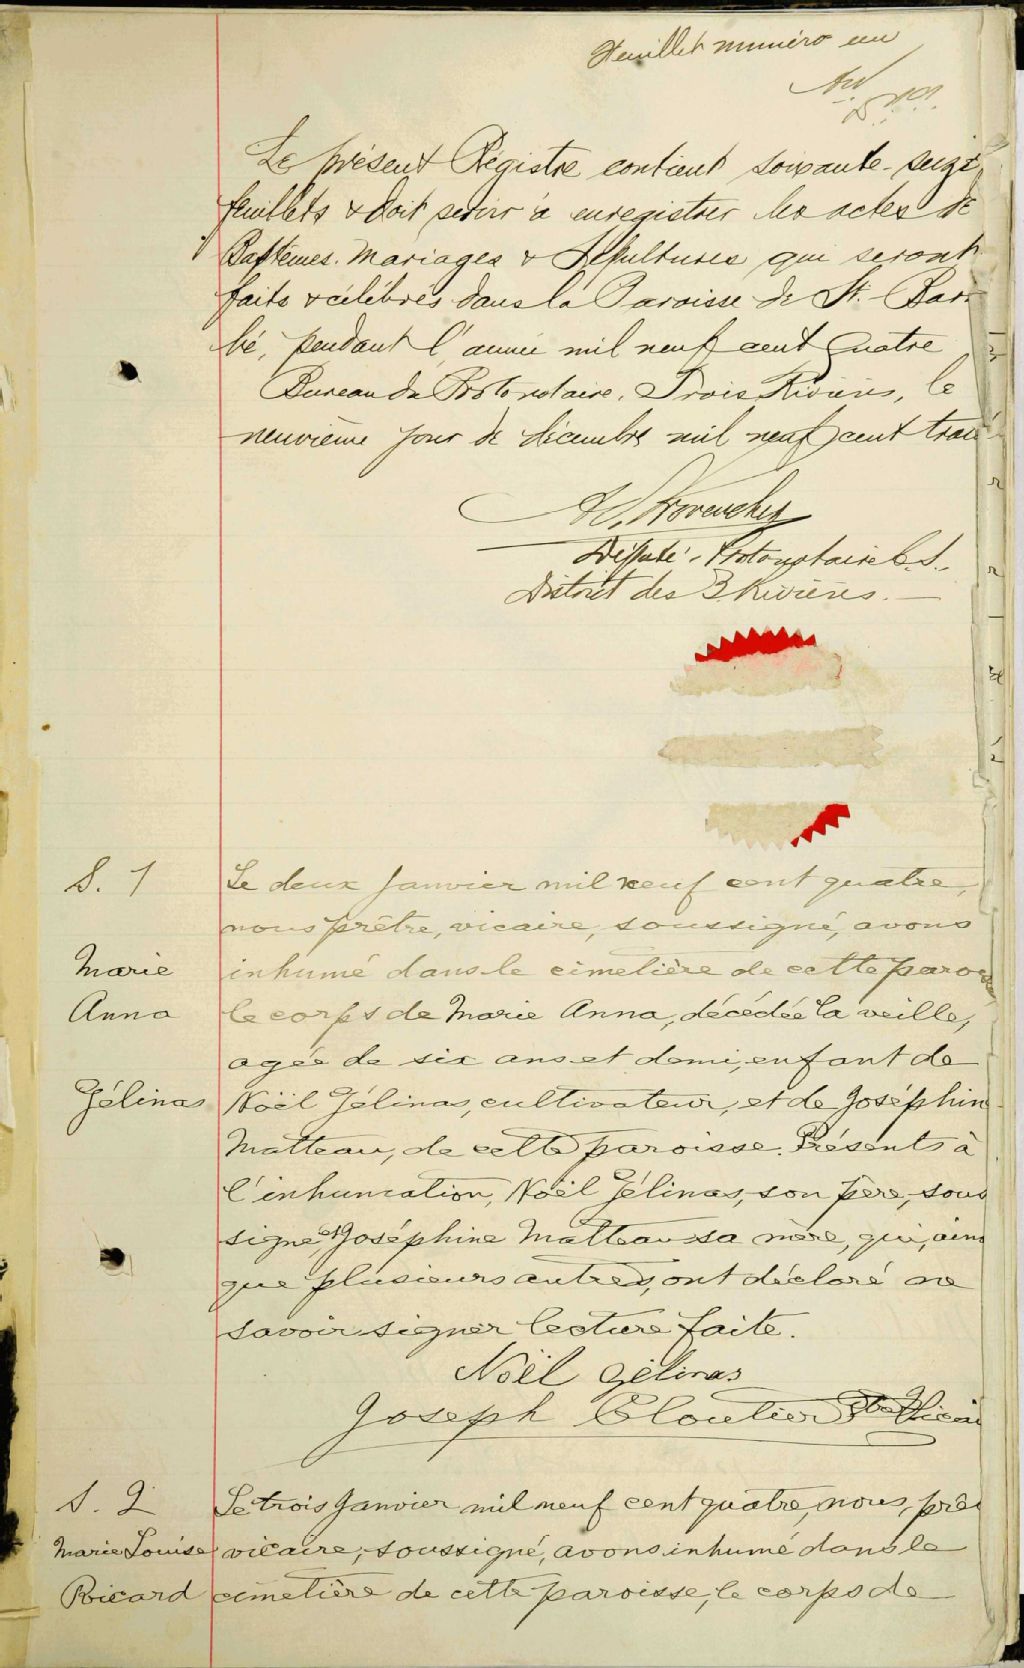 Feuillet numéro un
Le présent Régistre contient soixante-seize
feuillets & doit servir à enregistrer les actes de
Baptêmes. Mariages & Sépultures qui seront
faits & célébrés dans la Paroisse de St.-Bar
bé, pendant l'année mil neuf cent quatre
Bureau du Protonotaire, Trois Rivières, le
neuvième jour de décembre mil neuf cent trois
Provencher
Député-Protonotaire C.S.
District des 3 Rivières.—
S. 1
Marie
Anna
Gélinas
Le deux Janvier mil neuf cent quatre,
nous prêtre, vicaire, soussigné, avons
inhumé dans le cimetière de cette paroisse
le corps de Marie Anna, décédée la veille,
agée de six ans et demi, enfant de
Noël Gélinas, cultivateur, et de Joséphin
Matteau, de cette paroisse. Présents à
l'inhumation, Noël Gélinas, son père, sous
signé, et Joséphine Matteau sa mère, qui, ains
que plusieurs autres, ont déclaré ne
savoir signer lecture faite.
Noël Gélinas
Joseph Cloutier Ptre Vicai
S. 2
Marie Louise
Ricard
Le trois Janvier mil neuf cent quatre, nous, prê
vicaire, soussigné, avons inhumé dans le
cimetière de cette paroisse, le corps de